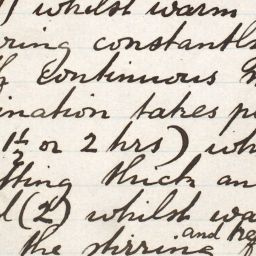 ) whilst warm
ring constantly
continuous
nation takes
1½ or 2 hrs) wh
tting thick an
d (2) whilst wa
the stirring and